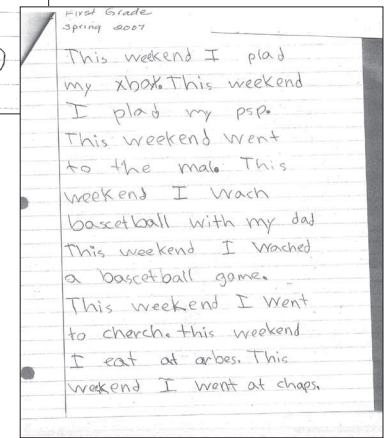 First Grade
Spring 2007
This weekend I plad
my xbox. This weekend
I plad my psp.
This weekend went
to the male. This
weekend I wach
bascetball with my dad
This weekend I wached
a bascetball game.
This weekend I went
to cherch. this weekend
I eat at arbes. This
weekend I went at chaps.